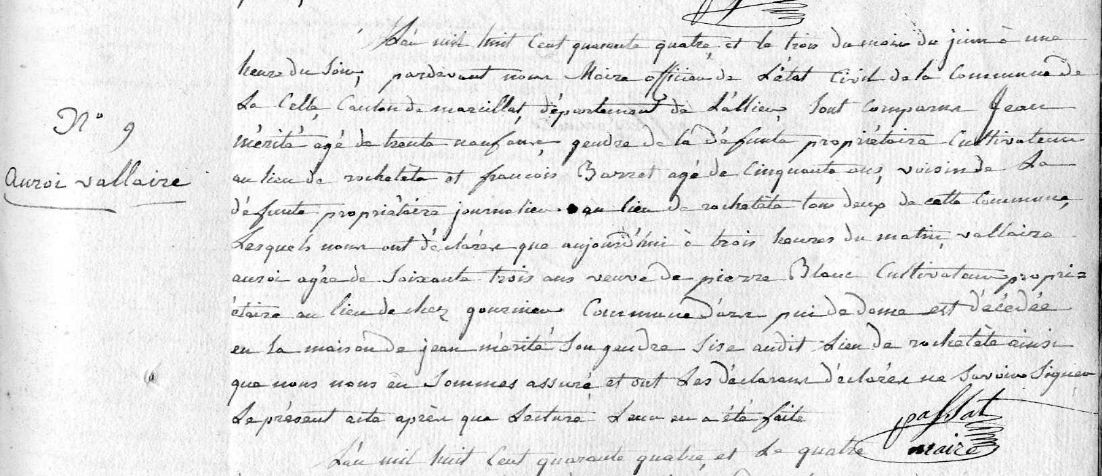 L'an mil huit cent quarante quatre, et le trois du mois du juin à une
heure du soir, pardevant nous Maire officier de L'état Civil de la Commune de
La Celle, Canton de marcillat, département de L'allier, sont comparus Jean
N° 9
mérité agé de trente neuf ans, gendre de la défunte propriétaire Cultivateur
auroi vallaire
au lieu de rochetète et françois Barret agé de cinquante ans, voisin de La
défunte propriétaire journalier au lieu de rochetète tous deux de cette Commune,
Lesquels nous ont déclarés que aujourd'hui à trois heures du matin, vallaire
auroi agée de soixante trois ans veuve de pierre Blanc Cultivateur propri=
étaire au lieu de chez Commune d'ars pui de dome est décédée
en la maison de jean mérité son gendre sise audit Lieu de rochetète ainsi
que nous nous en sommes assuré et ont Les déclarans déclarés ne savoir signer
Le présent acte après que Lecture Leur en a été faite
passat
maire
L'an mil huit Cent quarante quatre, et Le quatre